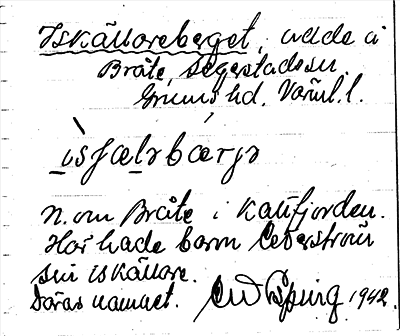 Iskällareberget, udde i
Bråte, Segerstads sn
Grums hd. Värml. l.
ìsʃælsbærjə
N. om Bråte i Kattfjorden.
Här hade baron Cederström
sin iskällare.
Däras namnet. 1942.